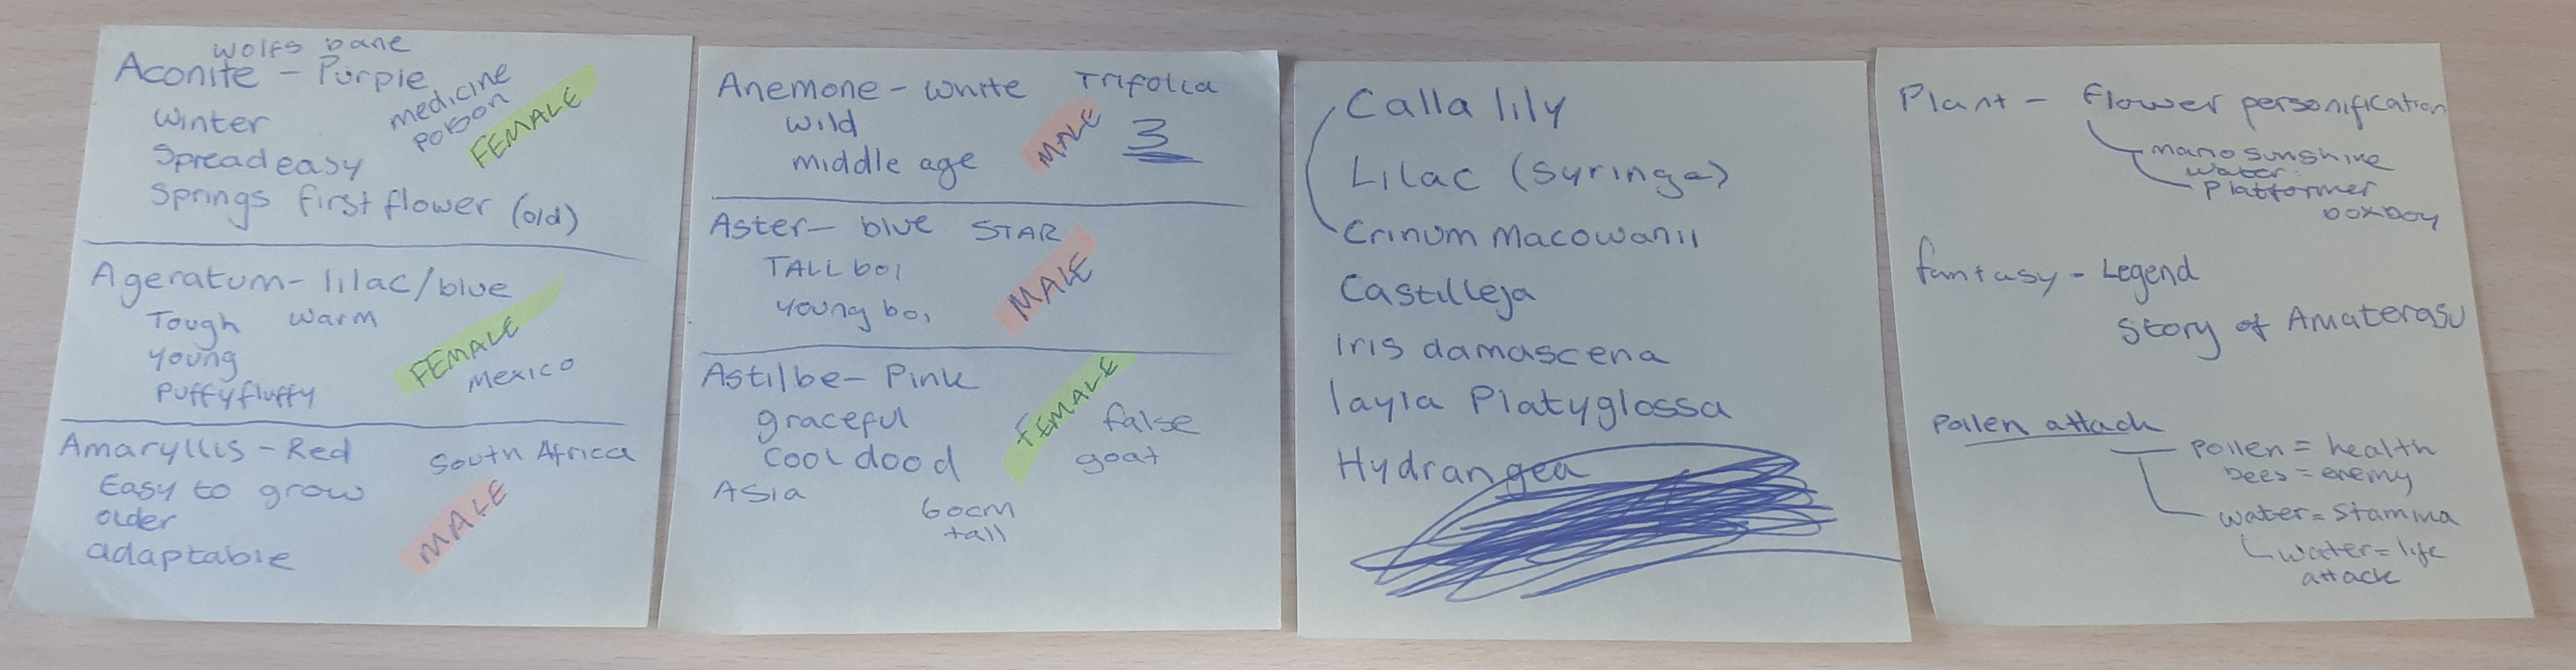 wolfs bane
Aconite - Purple
medicine
poison
FEMALE
winter
Spread easy
Springs first flower (old)
Ageratum - lilac/blue
Tough warm
young
Puffyfluffy
FEMALE
Mexico
Amaryllis - Red
South Africa
Easy to grow
older
adaptable
MALE
Anemone - white Trifolia
wild
middle age
MALE
3
Aster - blue STAR
TALL boi
young boi
MALE
Astilbe - Pink
graceful
cool dood
FEMALE
false
goat
Asia
60cm
tall
Calla lily
Lilac (Syringa)
Crinum Macowanii
Castilleja
Iris damascena
layia Platyglossa
Hydrangea
Plant - Flower personification
mario sunshine
water
Platformer
boxboy
fantasy - Legend
Story of Amaterasu
Pollen attack
Pollen = health
bees = enemy
water = Stamina
water = life
attack